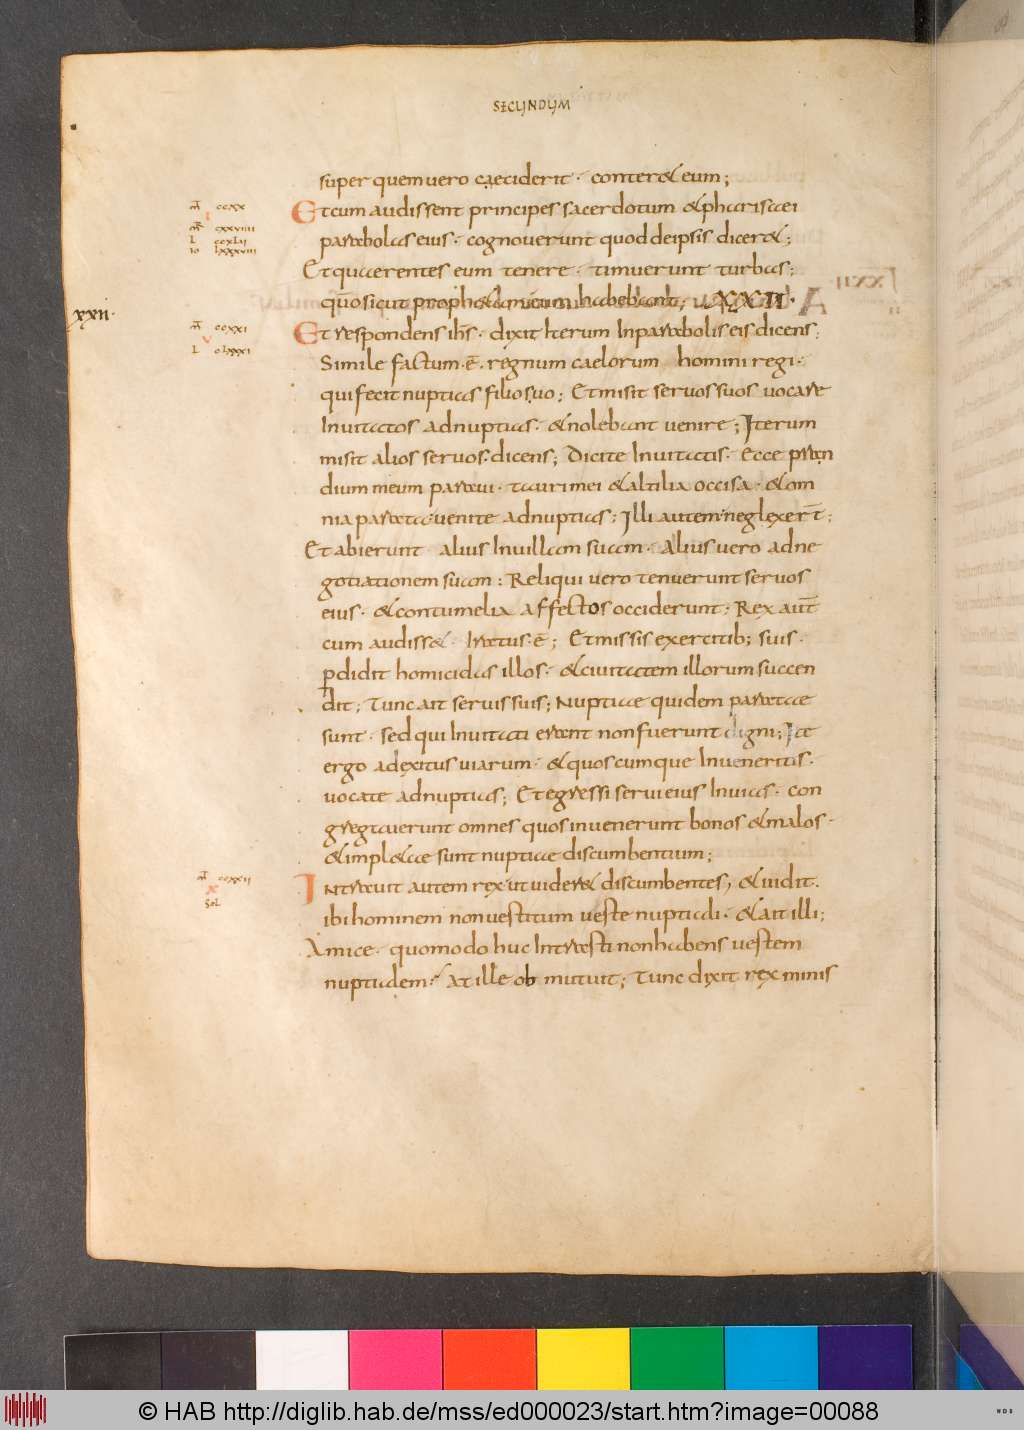 SECUNDUM
super quem vero caeciderit · conter& eum;
Et cum audissent principes sacerdotum & pharisaei
parabolas eius · cognoverunt quod de ipsis dicer&;
Et quaerentes eum tenere · timuerunt turbas;
quo sicut proph&am eum habebant; XXII·
Et respondens ihs · dixit Iterum In parabolis eis dicens;
Simile factum · ē · regnum caelorum homini regi ·
qui fecit nuptias filio suo; Et misit servos suos vocare
Invitatos ad nuptias · & nolebant venire; Iterum
misit alios servos · dicens; Dicite Invitatis · Ecce pran
dium meum paravi · tauri mei & altilia occisa · & om
nia parata · venite ad nuptias; Illi autem neglexert̄;
Et abierunt alius In villam suam · Alius vero ad ne
gotiationem suam : Reliqui vero tenuerunt servos
eius · & contumelia affectos occiderunt; Rex aut̄
cum audiss& · Iratus · ē; Et missis exercitib; suis ·
pdidit homicidas illos · & civitatem illorum succen
dit; Tunc ait servis suis; Nuptiae quidem paratae
sunt · sed qui Invitati erant non fuerunt digni; Ite
ergo ad exitus viarum · & quoscumque Inveneritis ·
vocate ad nuptias; Et egressi servi eius In vias · con
gregaverunt omnes quos invenerunt bonos & malos ·
& impl&ae sunt nuptiae discumbentium;
Intravit autem rex ut vider& discumbentes, & vidit ·
ibi hominem non vestitum veste nuptiali · & ait illi;
Amice · quomodo huc Intrasti non habens vestem
nuptialem · At ille obmutuit; Tunc dixit rex minis
ccxx
cxxviiii
L ccxLii
Io Lxxxviii
xxii·
ccxxi
L cLxxxi
ccxxii
SoL
© HAB http://diglib.hab.de/mss/ed000023/start.htm?image=00088